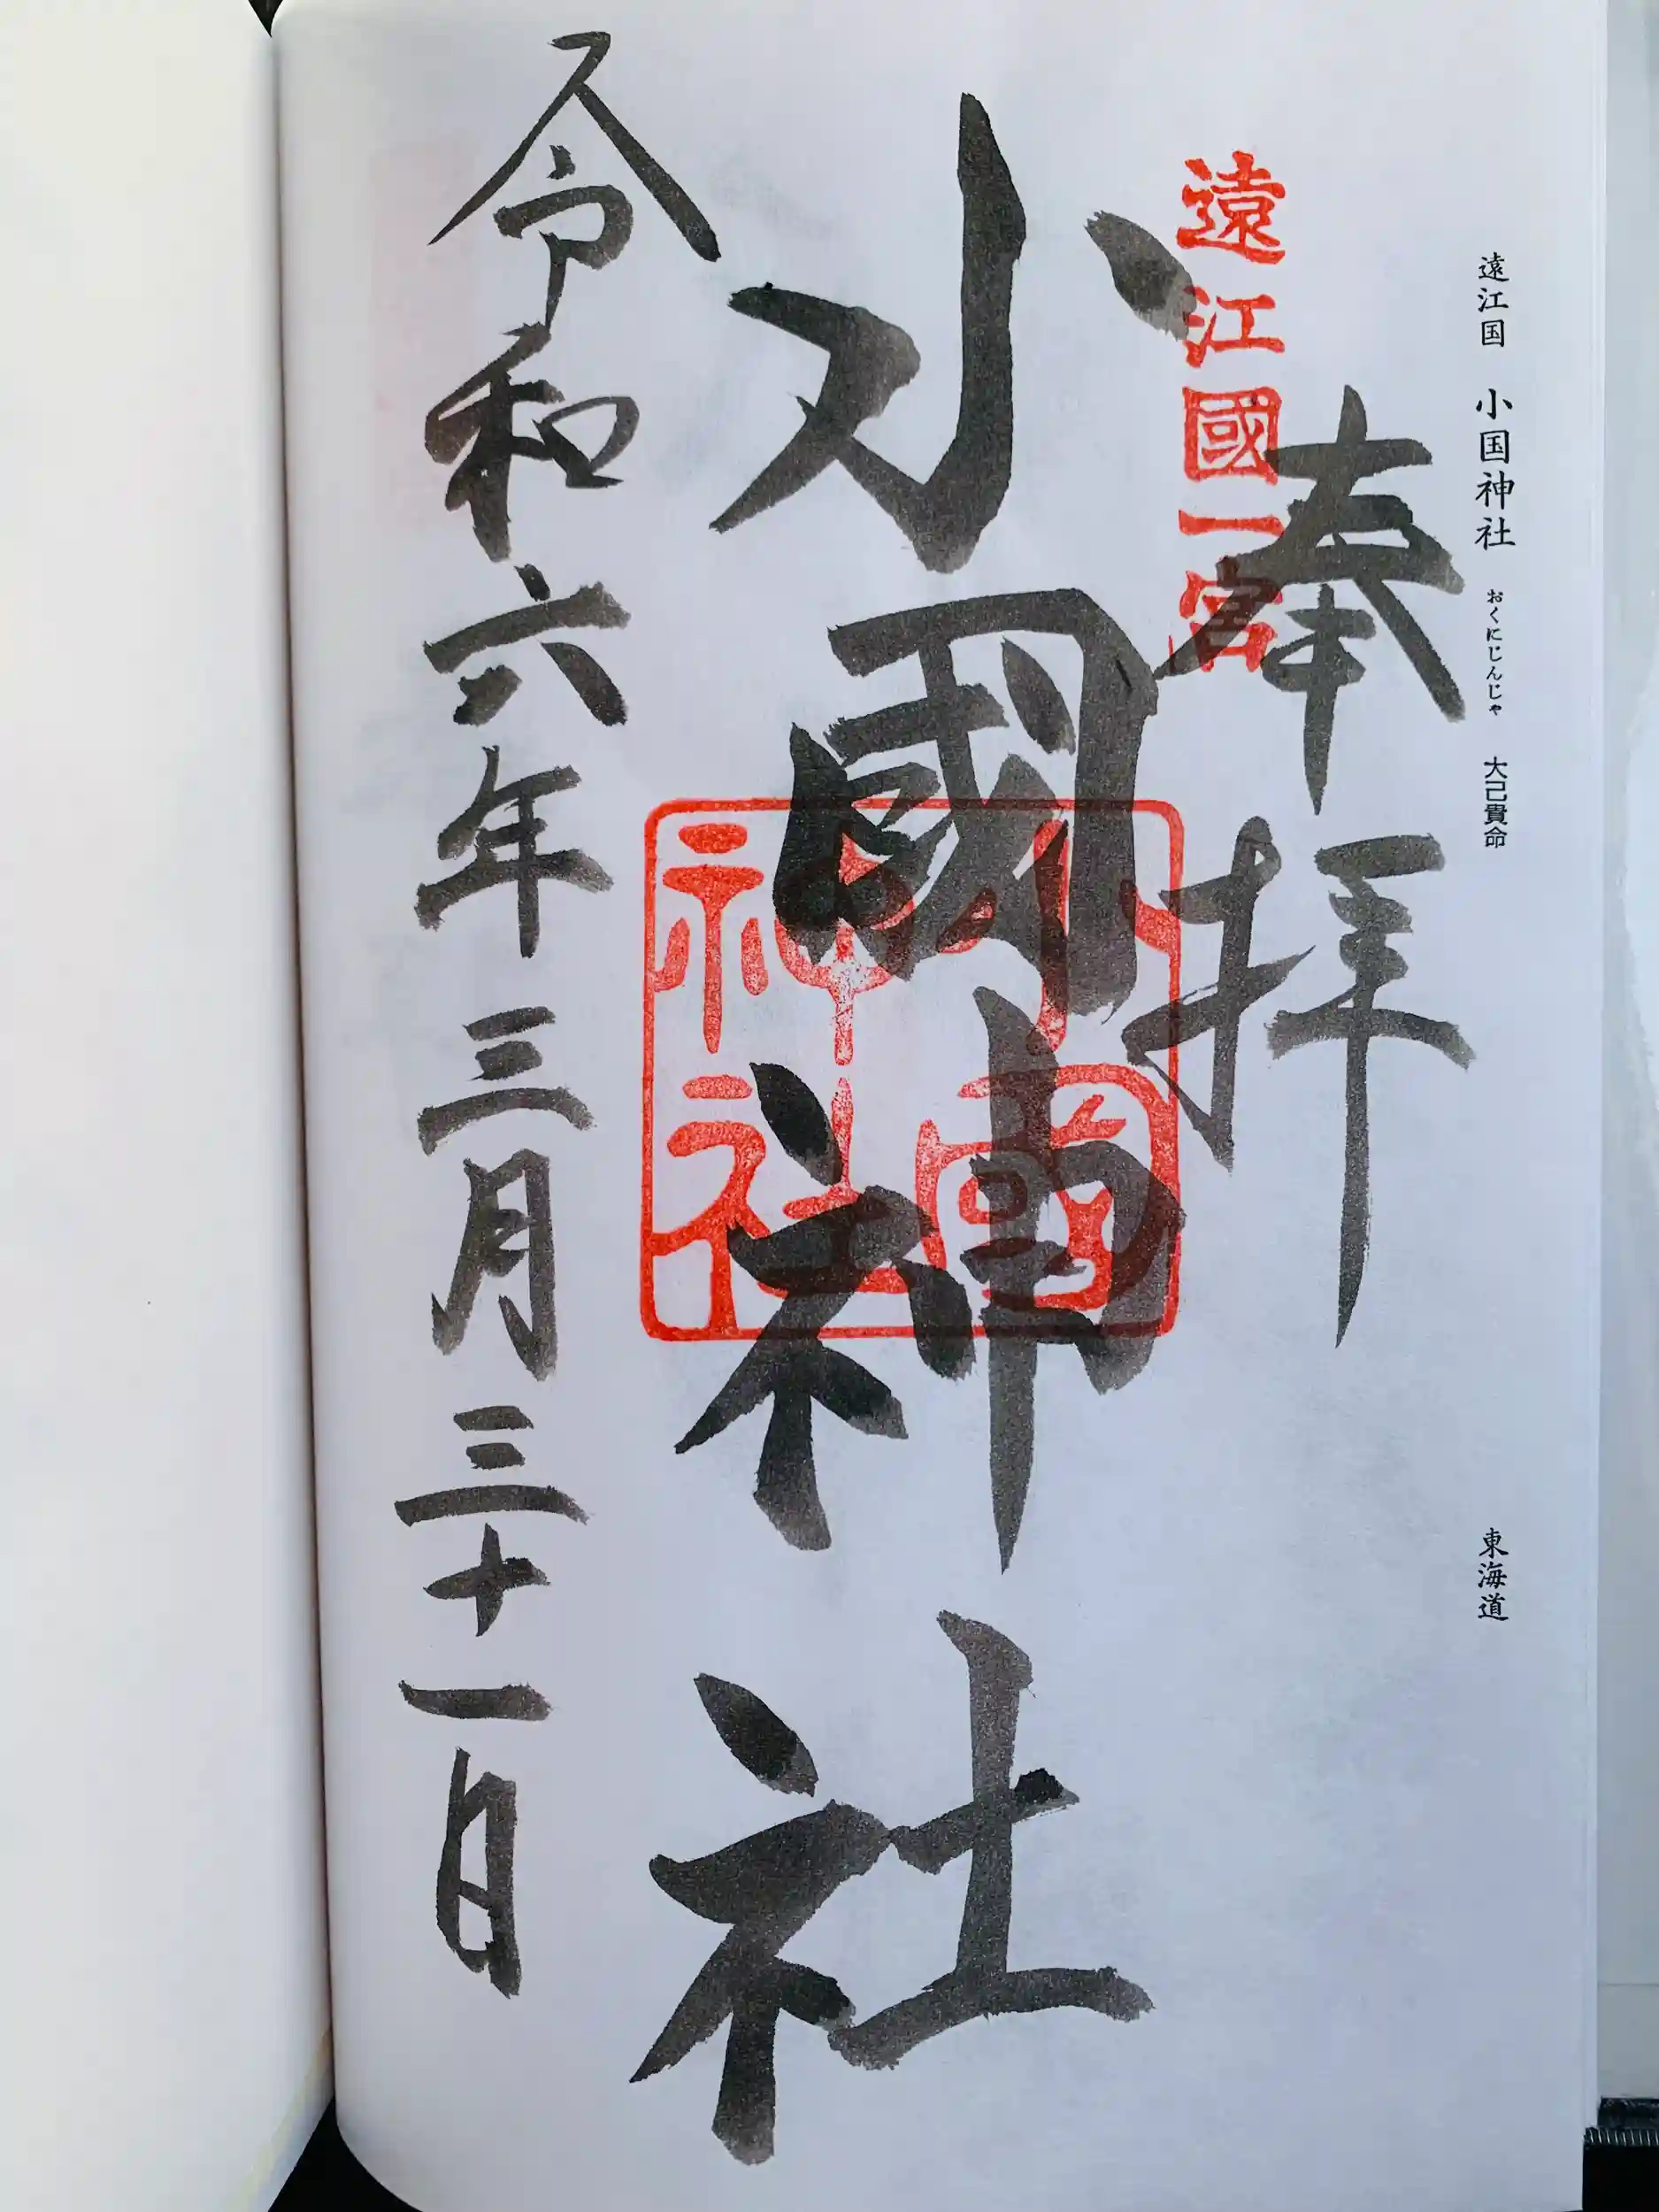 遠江国 小国神社 おくにじんじゃ 大己貴命 東海道
奉拝
遠江國一宮
小國神社
小國神社
令和六年三月三十一日